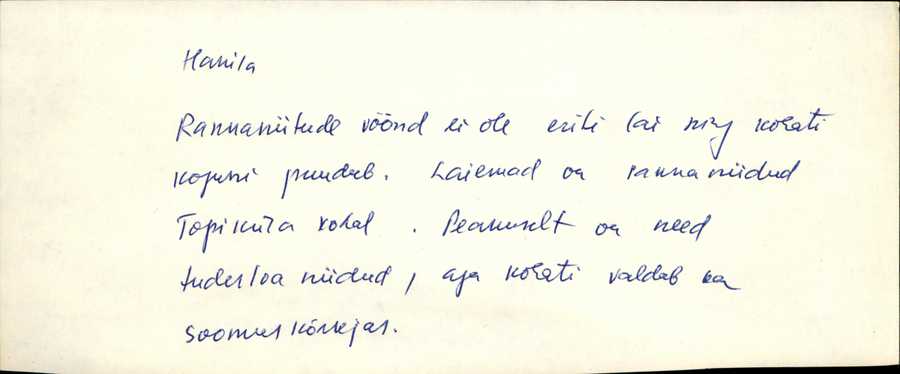 Hanila
Rannaniitude vöönd ei ole eriti lai ning kohati
koguni puudub. Laiemad on rannaniidud
Topiküla kohal. Peamiselt on need
tuderloa niidud, aga kohati valdab ka
soomuskõrkjas.